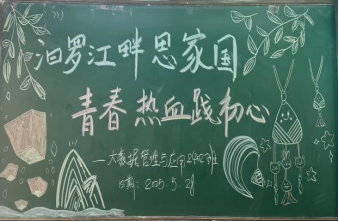 汨罗江畔思家国
青春热血践初心
——大数据管理与应用2402班
日期:2025.5.28